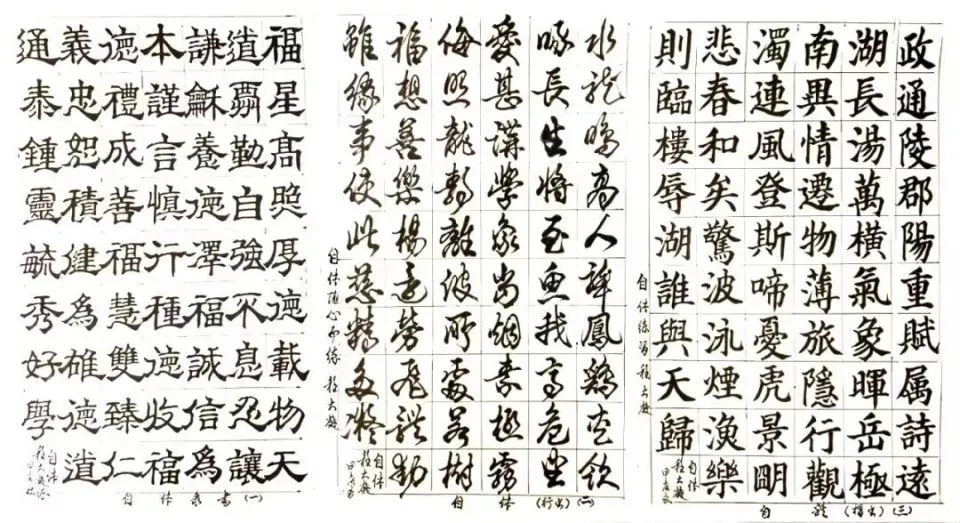 福星高照厚德載物天
道酬勤自強不息忍讓
謙龢養德澤福誠信為
本謹言慎行種德收福
德禮成善福慧雙臻仁
義忠恕積健為雄德道
通泰鍾靈毓秀好學
自体
自体隶書(一)
水龍鳴高人鳳鷄飲
啄長生將至魚我高危坐
愛甚講學象烟素極霧
侮照龍翱離彼所處若樹
福想善樂楊勞飛動
雖緣事使此慈精多凝
自体隨心而緣
自体
自体(行书)(二)
政通陵郡陽重賦属詩遠
湖長湯萬橫氣象暉岳極
南異情遷物薄旅隱行觀
濁連風登斯啼憂虎景明
悲春和矣驚波泳煙漁樂
則臨樓辱湖誰與天歸
自体練習
自体
自體(楷书)(三)